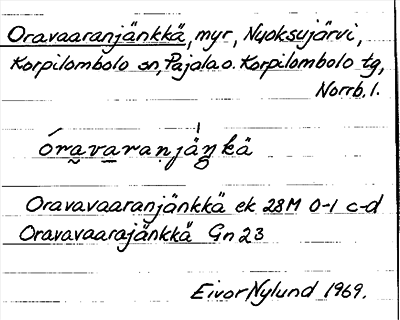 Oravaaranjänkkä, myr, Nuoksujärvi,
Korpilombolo sn, Pajala o. Korpilombolo tg,
Norrb. l.
óra̰va̲raṇjäŋ̍kä
Oravavaaranjänkkä ek 28M 0-1 c-d
Oravavaarajänkkä Gn 23
Eivor Nylund 1969.